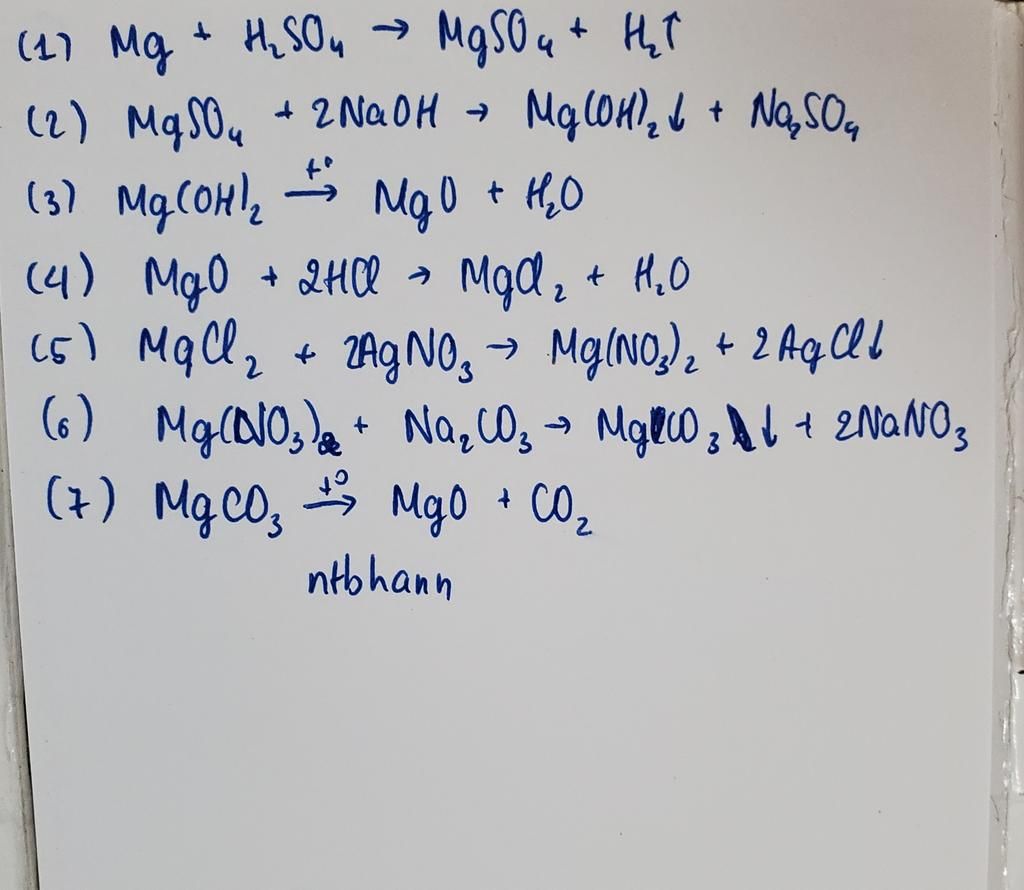 (1) Mg + H₂SO₄ → MgSO₄ + H₂↑
(2) MgSO₄ + 2NaOH → Mg(OH)₂↓ + Na₂SO₄
(3) Mg(OH)₂ –t°→ MgO + H₂O
(4) MgO + 2HCl → MgCl₂ + H₂O
(5) MgCl₂ + 2AgNO₃ → Mg(NO₃)₂ + 2AgCl↓
(6) Mg(NO₃)₂ + Na₂CO₃ → MgCO₃↓ + 2NaNO₃
(7) MgCO₃ –t°→ MgO + CO₂
ntbhann